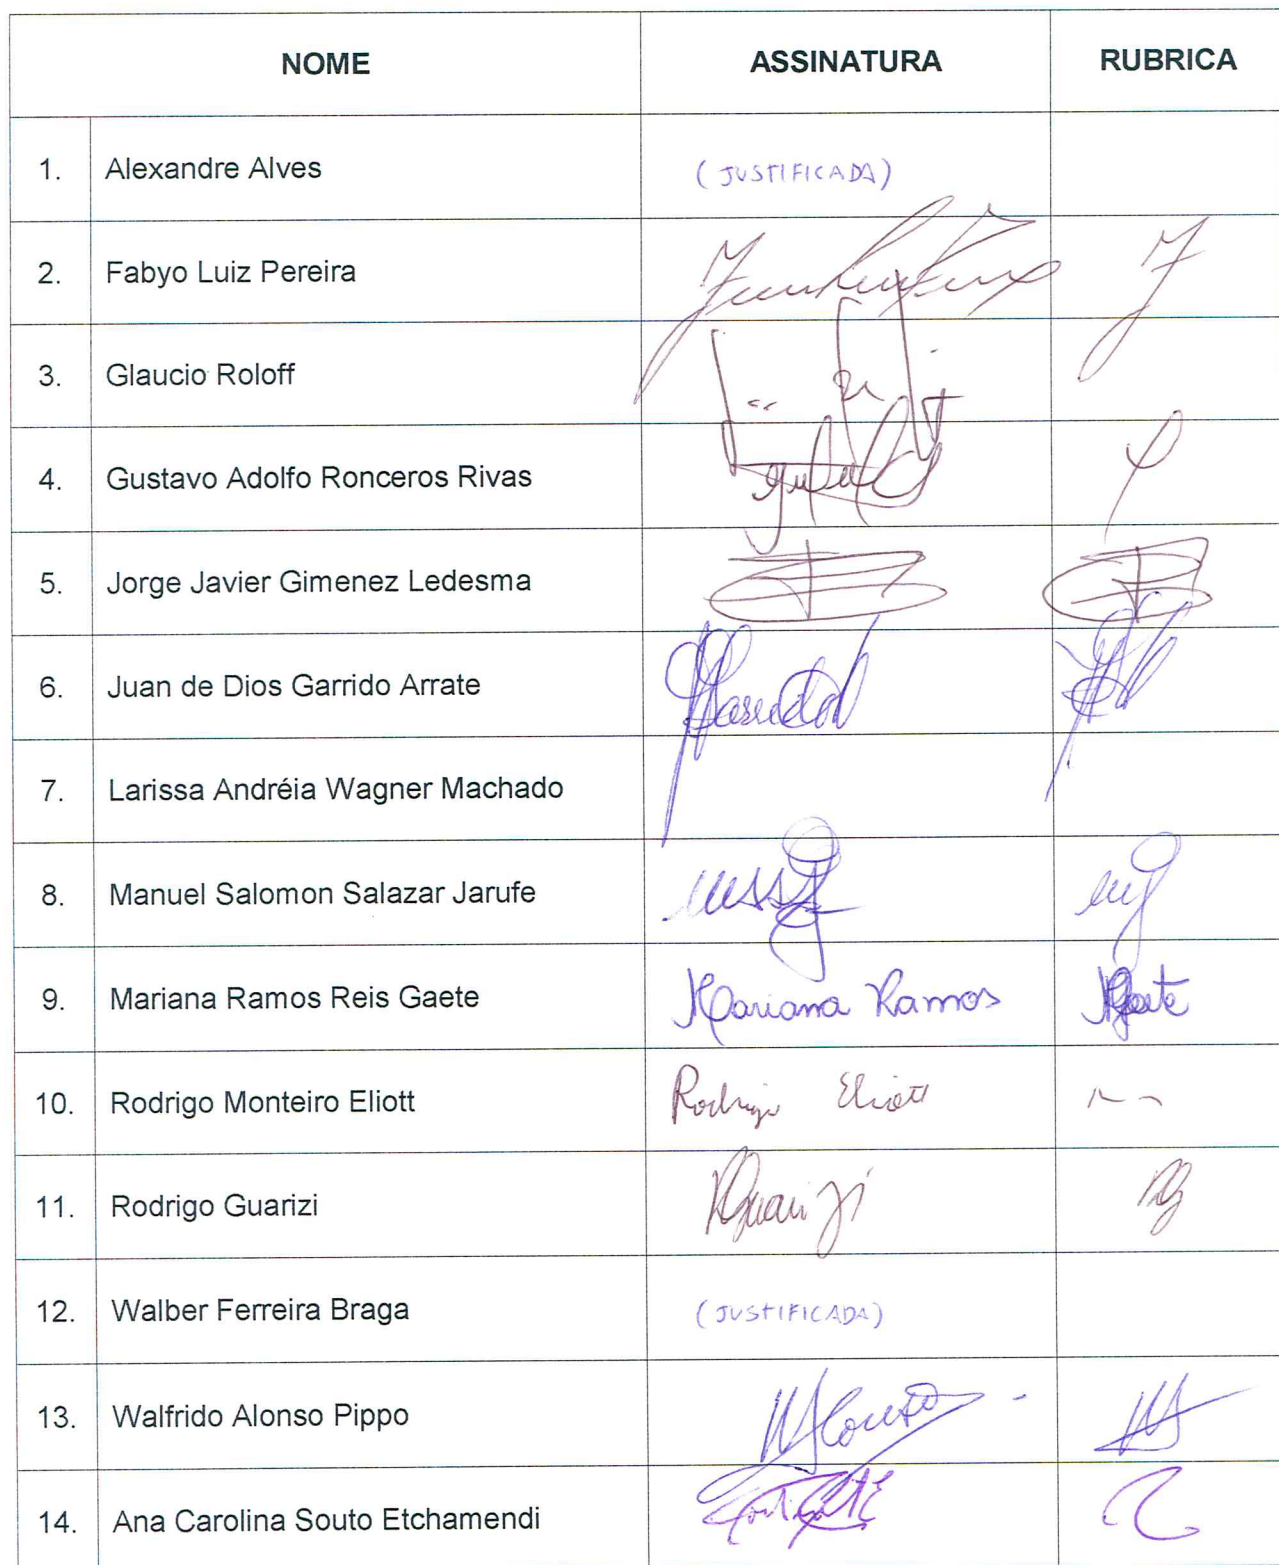 NOME ASSINATURA RUBRICA
1. Alexandre Alves (JUSTIFICADA)
2. Fabyo Luiz Pereira
3. Glaucio Roloff
4. Gustavo Adolfo Ronceros Rivas
5. Jorge Javier Gimenez Ledesma
6. Juan de Dios Garrido Arrate
7. Larissa Andréia Wagner Machado
8. Manuel Salomon Salazar Jarufe
9. Mariana Ramos Reis Gaete Mariana Ramos
10. Rodrigo Monteiro Eliott Rodrigo Eliott
11. Rodrigo Guarizi RGuarizi
12. Walber Ferreira Braga (JUSTIFICADA)
13. Walfrido Alonso Pippo
14. Ana Carolina Souto Etchamendi